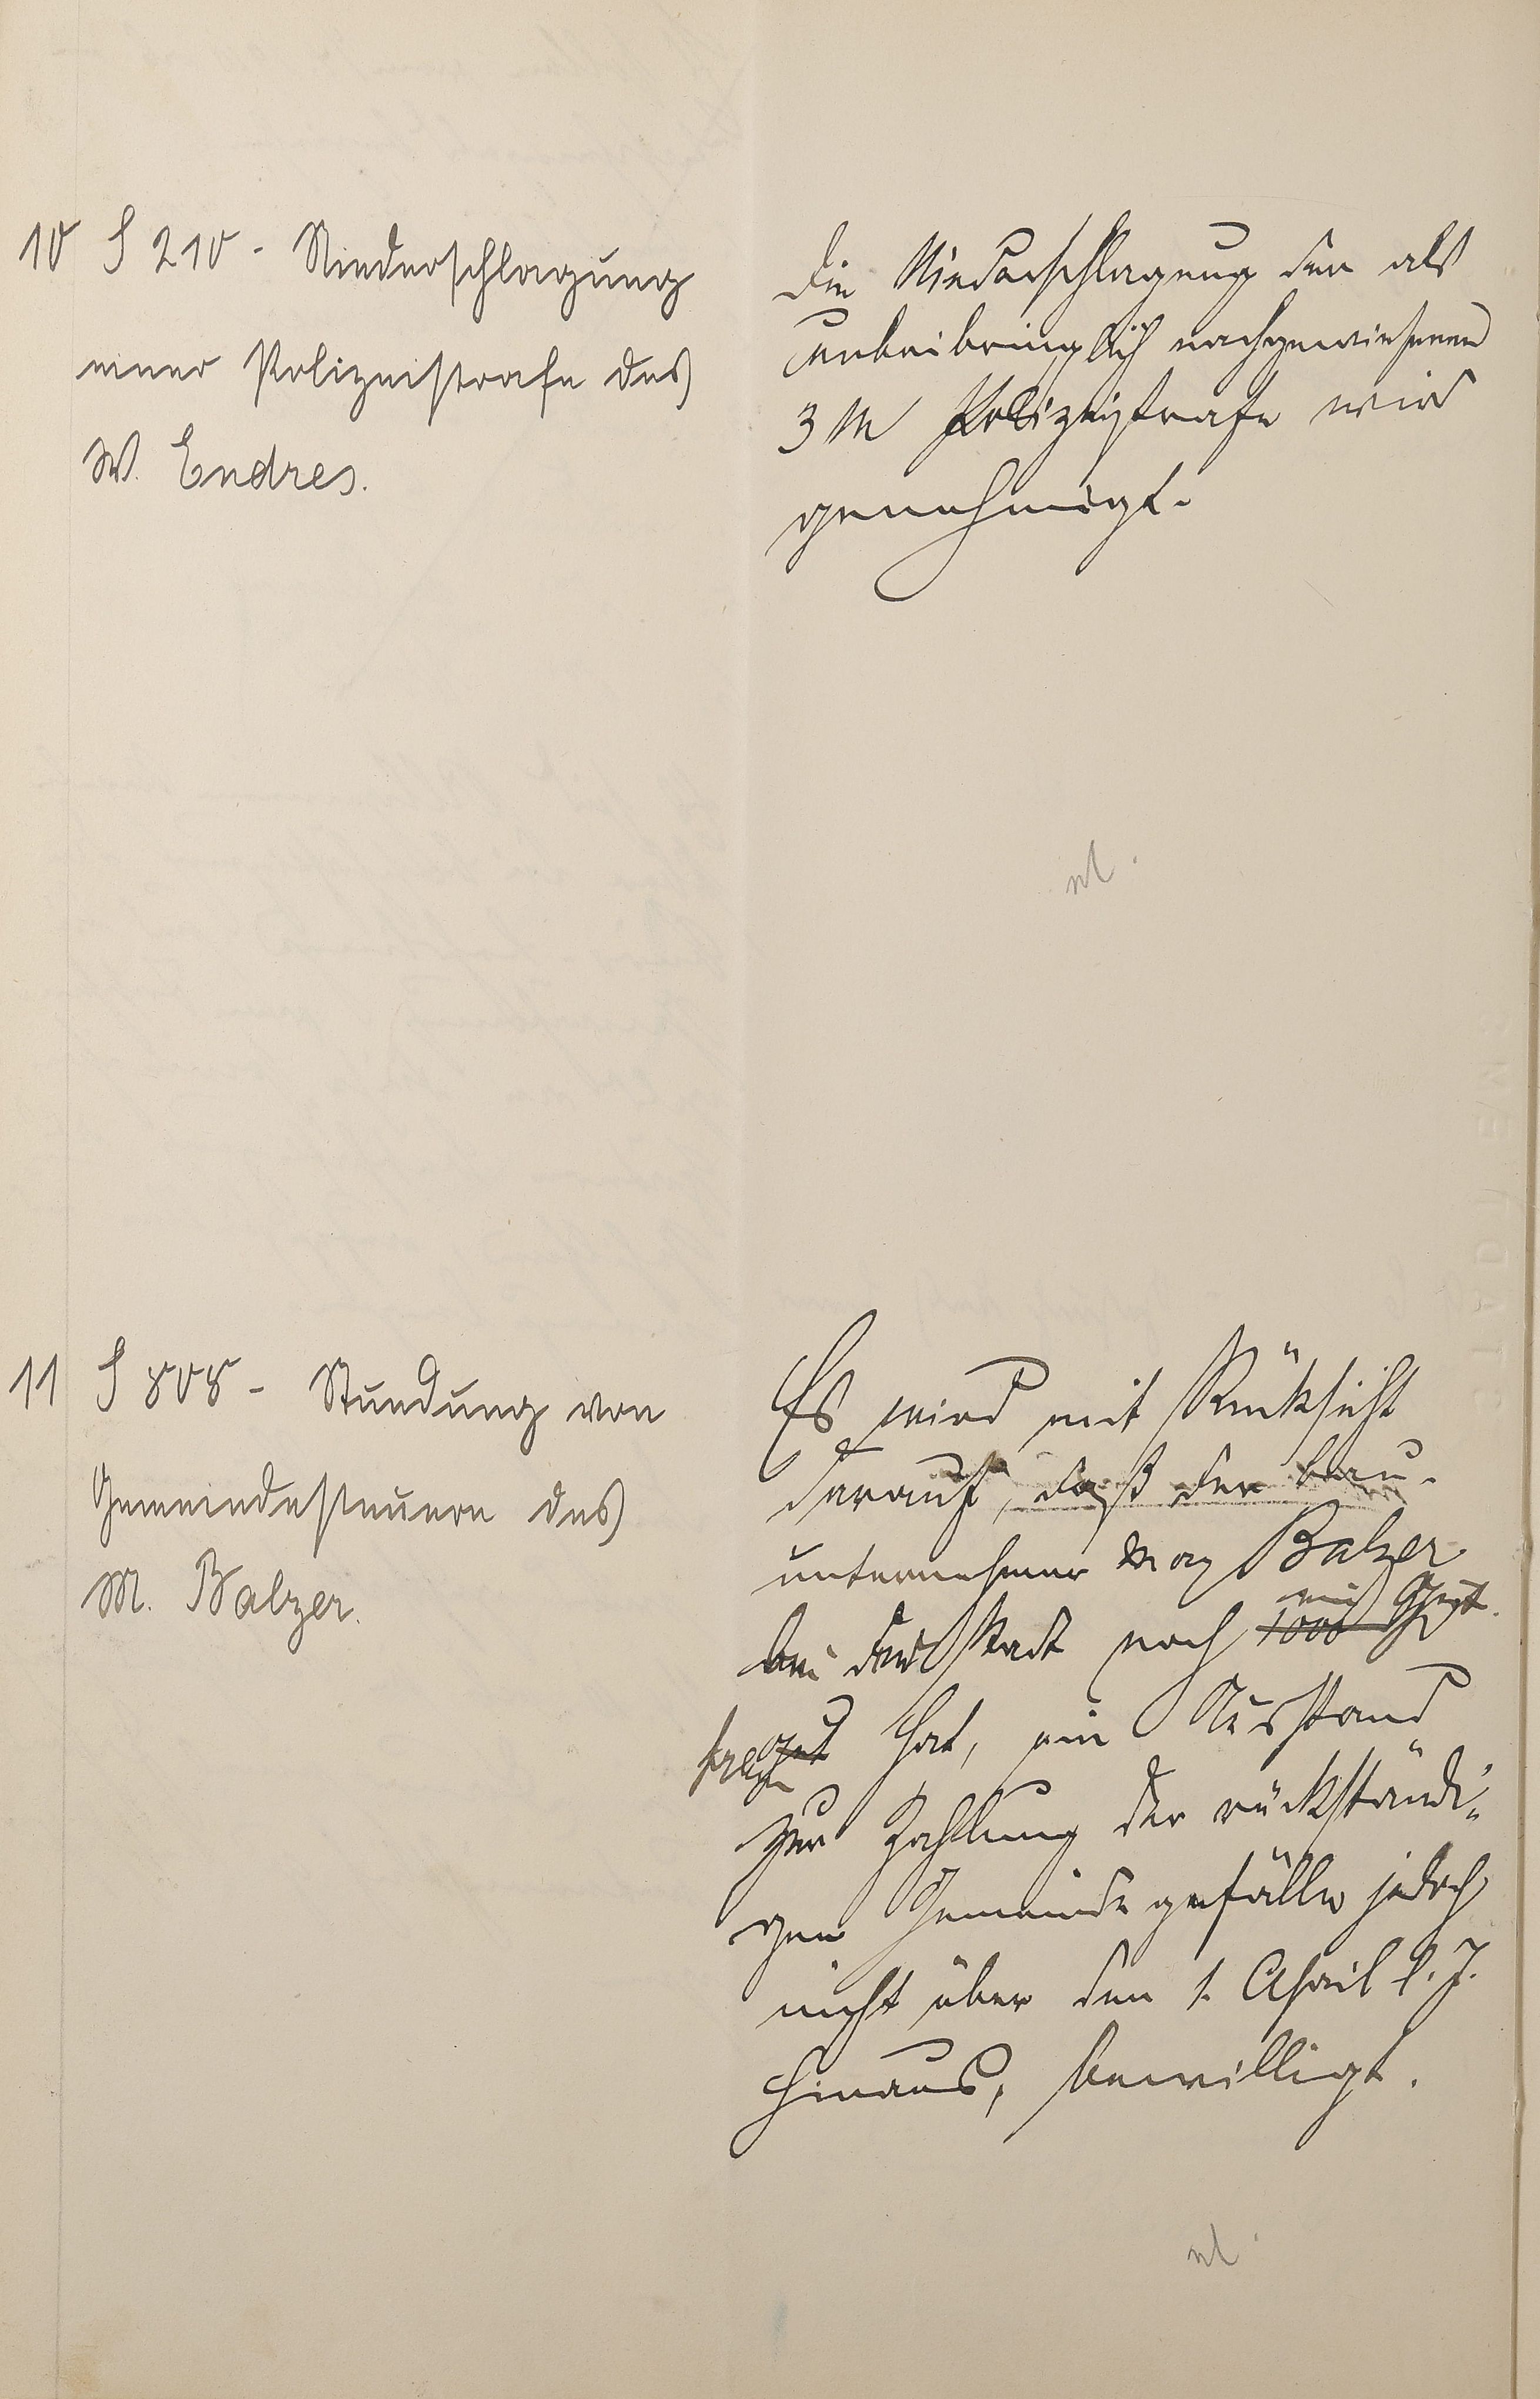 10 § 210 - Niederschlagung
einer Polizeistrafe des
W. Endres.
Die Niederschlagung der als
unbeibringlich nachgewiesenen
3 M Polizeistrafe wird
genehmigt.
11 § 808 - Stundung von
Gemeindesteuern des
M. Balzer.
Es wird mit Rücksicht
darauf, daß der Bau-
unternehmer Max Balzer
bei der Stadt noch 1000 ein
hat, ein Ausstand
zur Zahlung der rückständi-
gen Gemeindegefälle jedoch
nicht über den 1. April l. J.
hinaus, bewilligt.